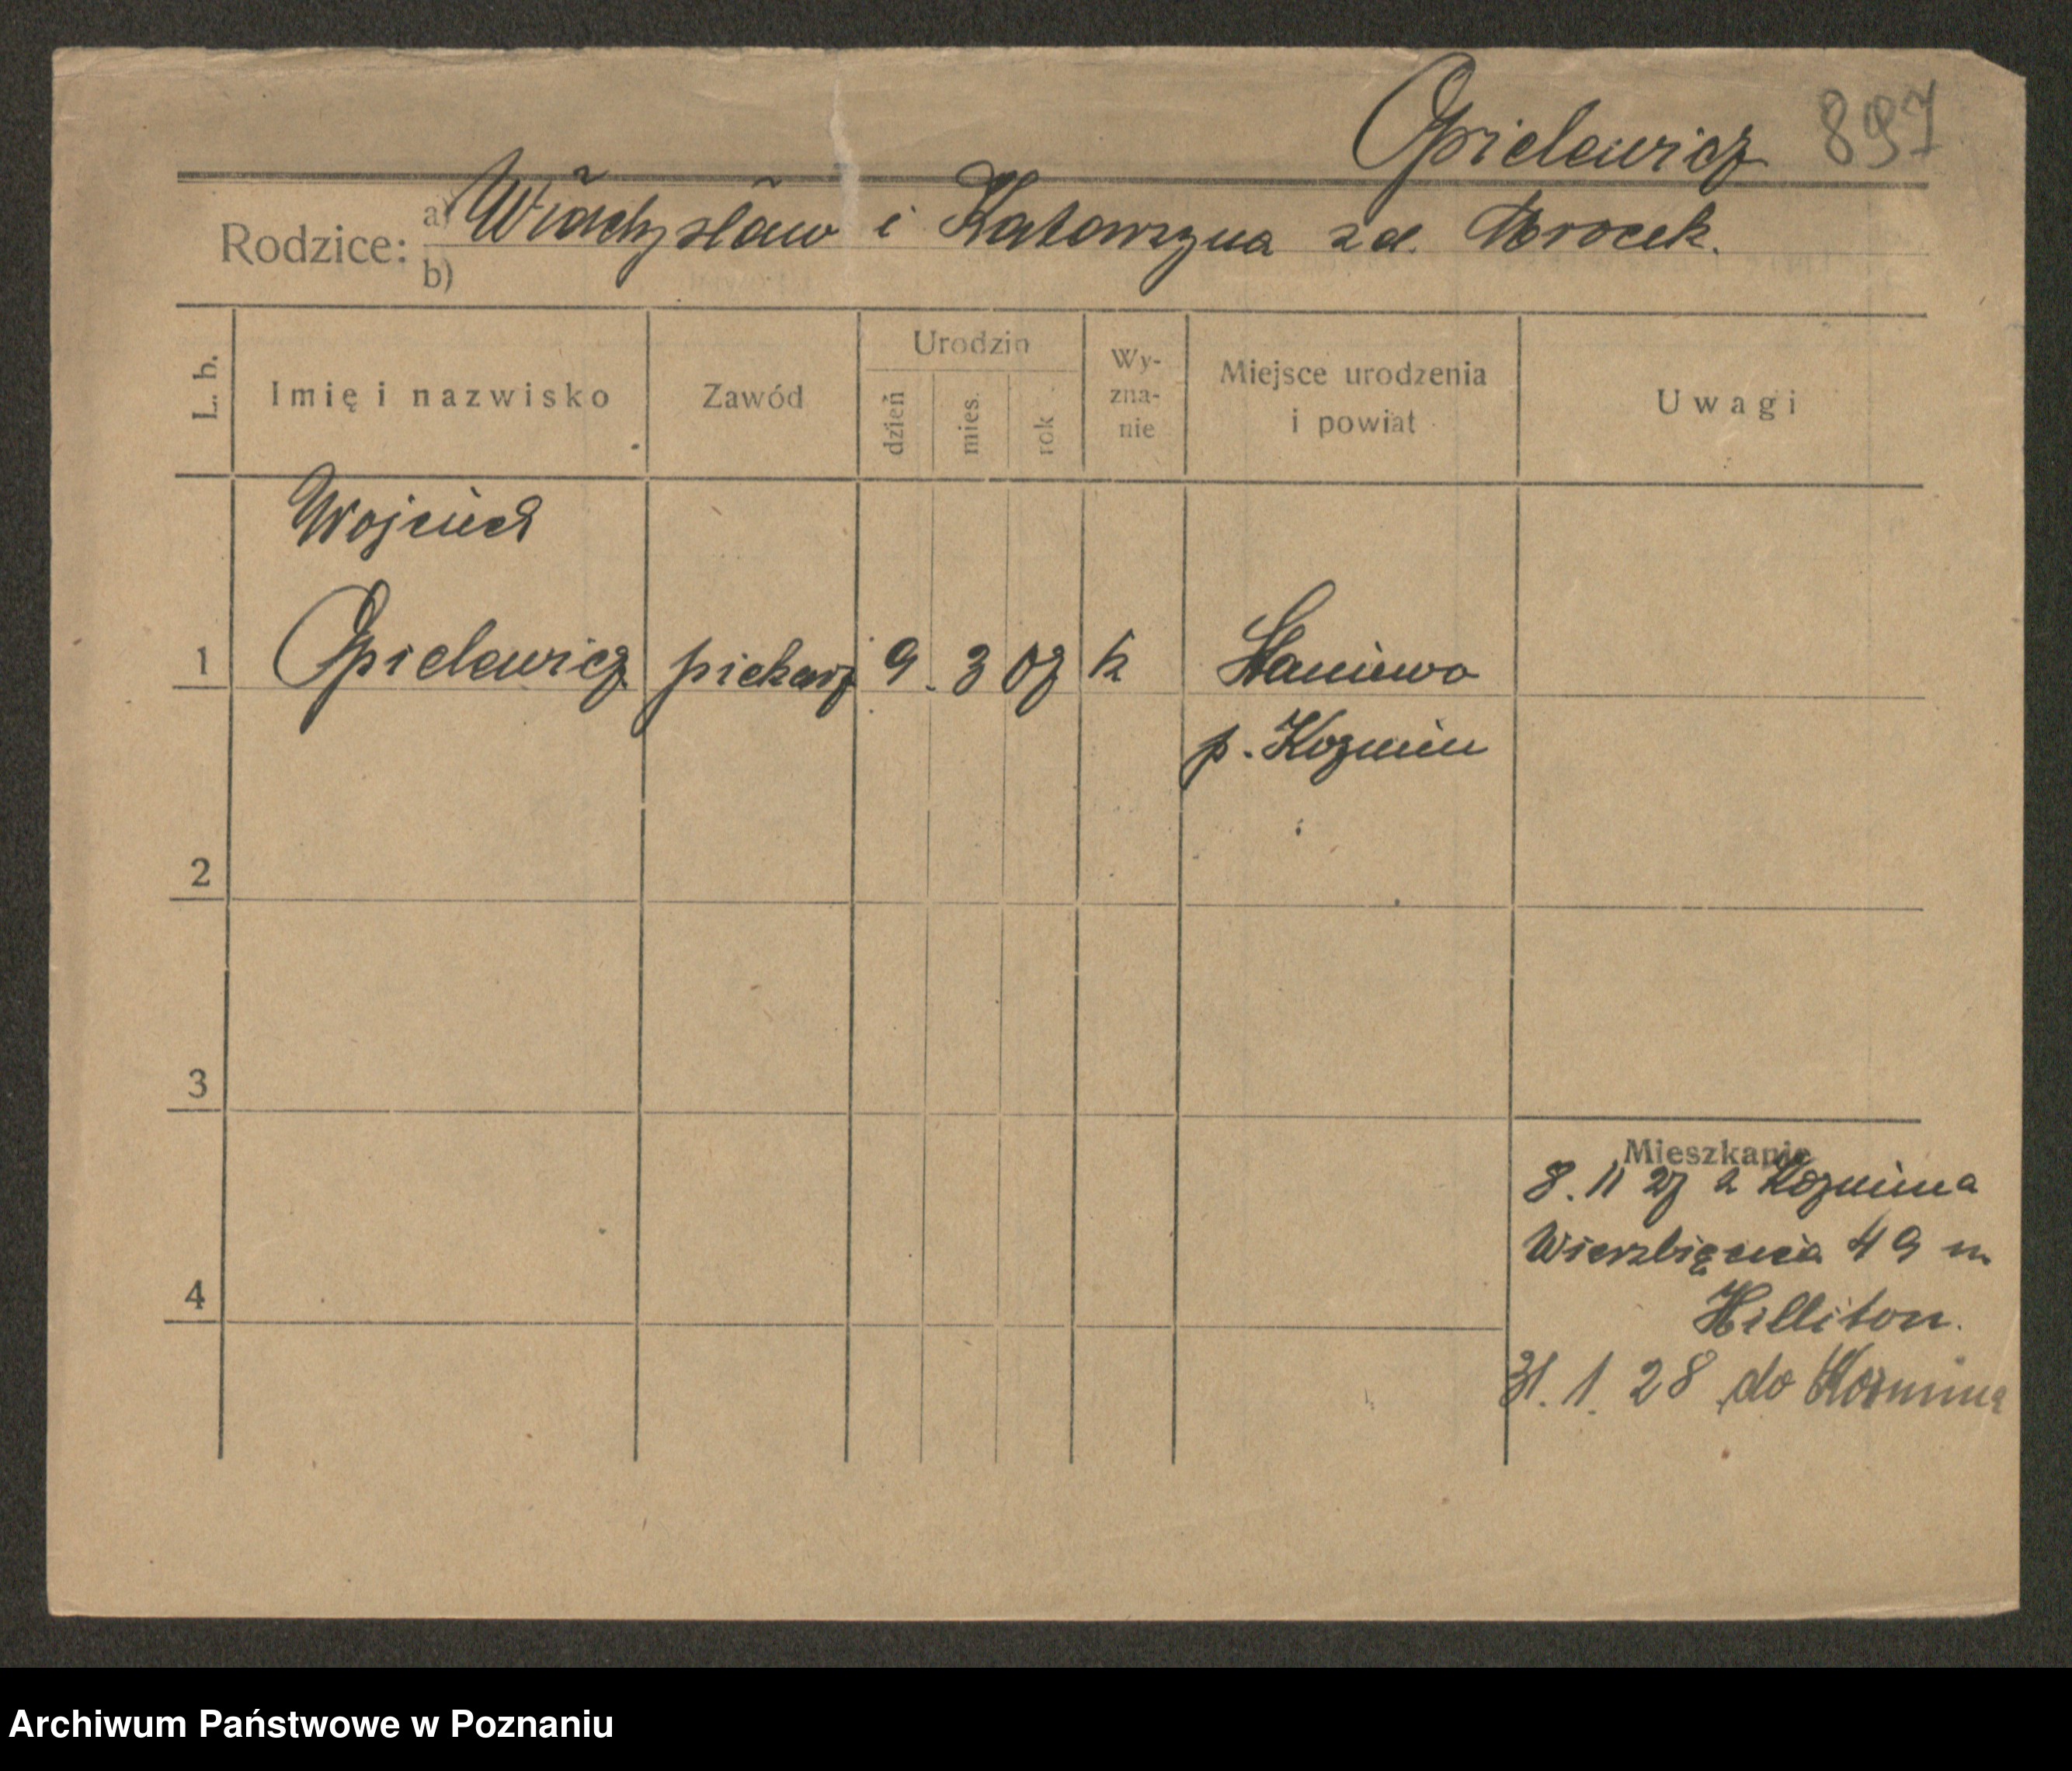 Opielewicz 897
Rodzice: a) Władysław i Katarzyna zd. Mrocek.
b)
L. b.
Imię i nazwisko
Zawód
Urodzin
dzień
mies.
rok
Wy-
zna-
nie
Miejsce urodzenia
i powiat
Uwagi
Wojciech
1 Opielewicz piekarz 9. 3 07 k Staniewo
p. Kozmin
2
3
4
Mieszkanie
8. 11 27 z Kozmina
Wierzbięcice 49 m
Hilliton.
31. 1. 28 do Kozmina
Archiwum Państwowe w Poznaniu